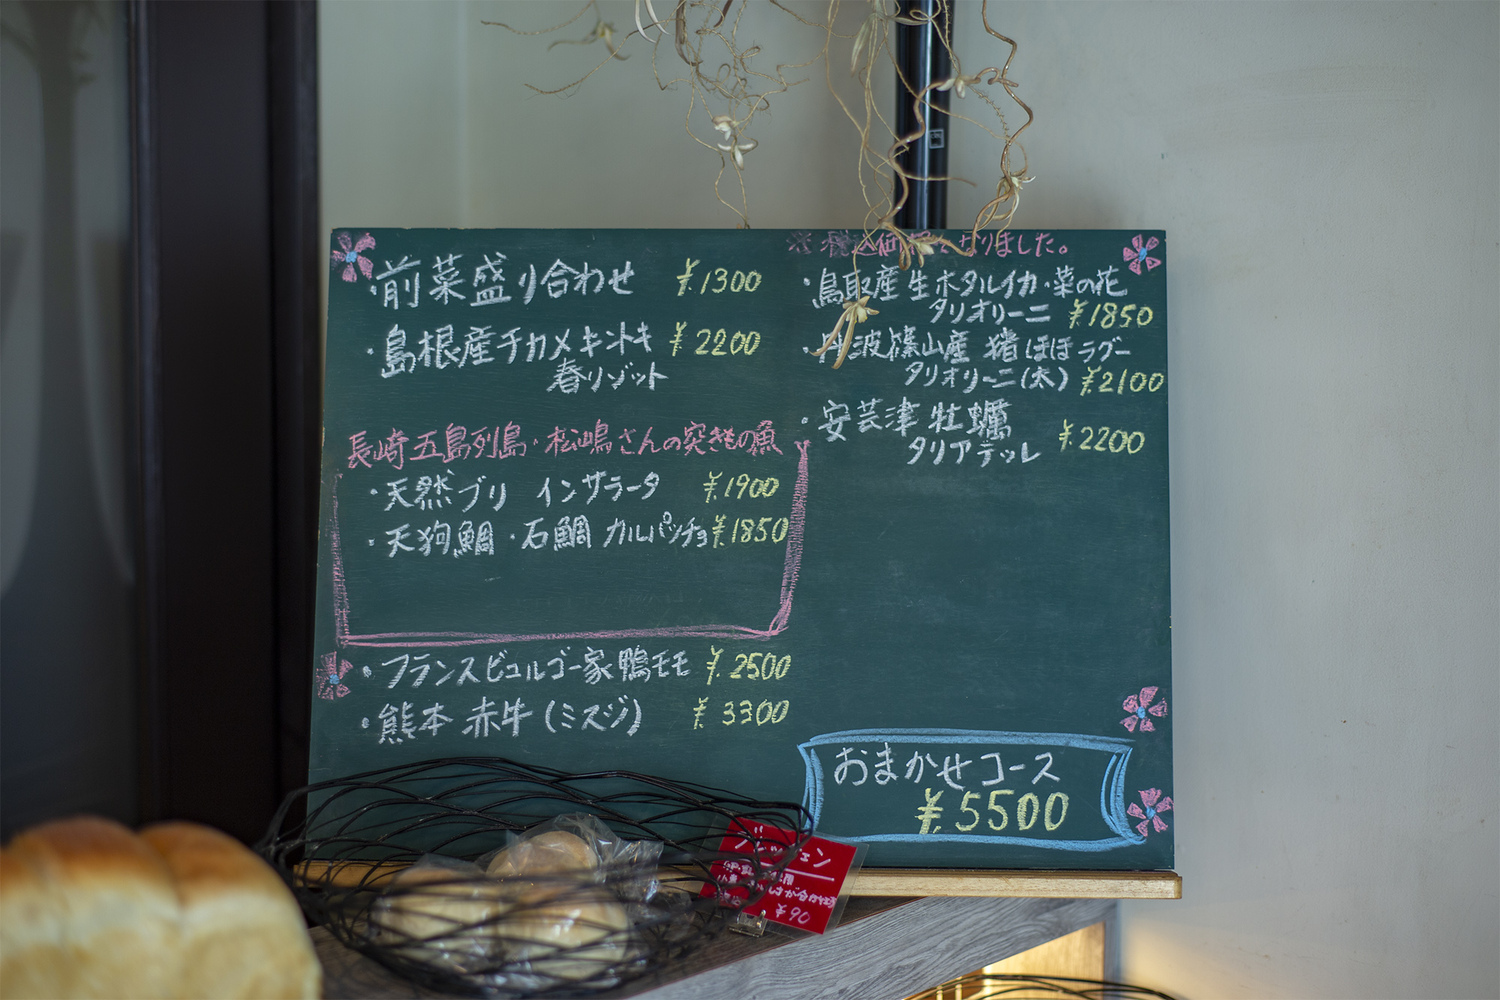 ・前菜盛り合わせ ¥1300
・島根産チカメキントキ ¥2200
春リゾット
長崎五島列島・松嶋さんの突きもの魚
・天然ブリ インサラータ ¥1900
・天狗鯛・石鯛 カルパッチョ ¥1850
・フランスビュルゴー家鴨モモ ¥2500
・熊本 赤牛(ミスジ) ¥3300
※税込価格となりました。
・鳥取産生ホタルイカ・菜の花
タリオリーニ ¥1850
・丹波篠山産 猪ほほラグー
タリオリーニ(太) ¥2100
・安芸津 牡蠣
タリアテッレ ¥2200
おまかせコース
¥5500
¥90